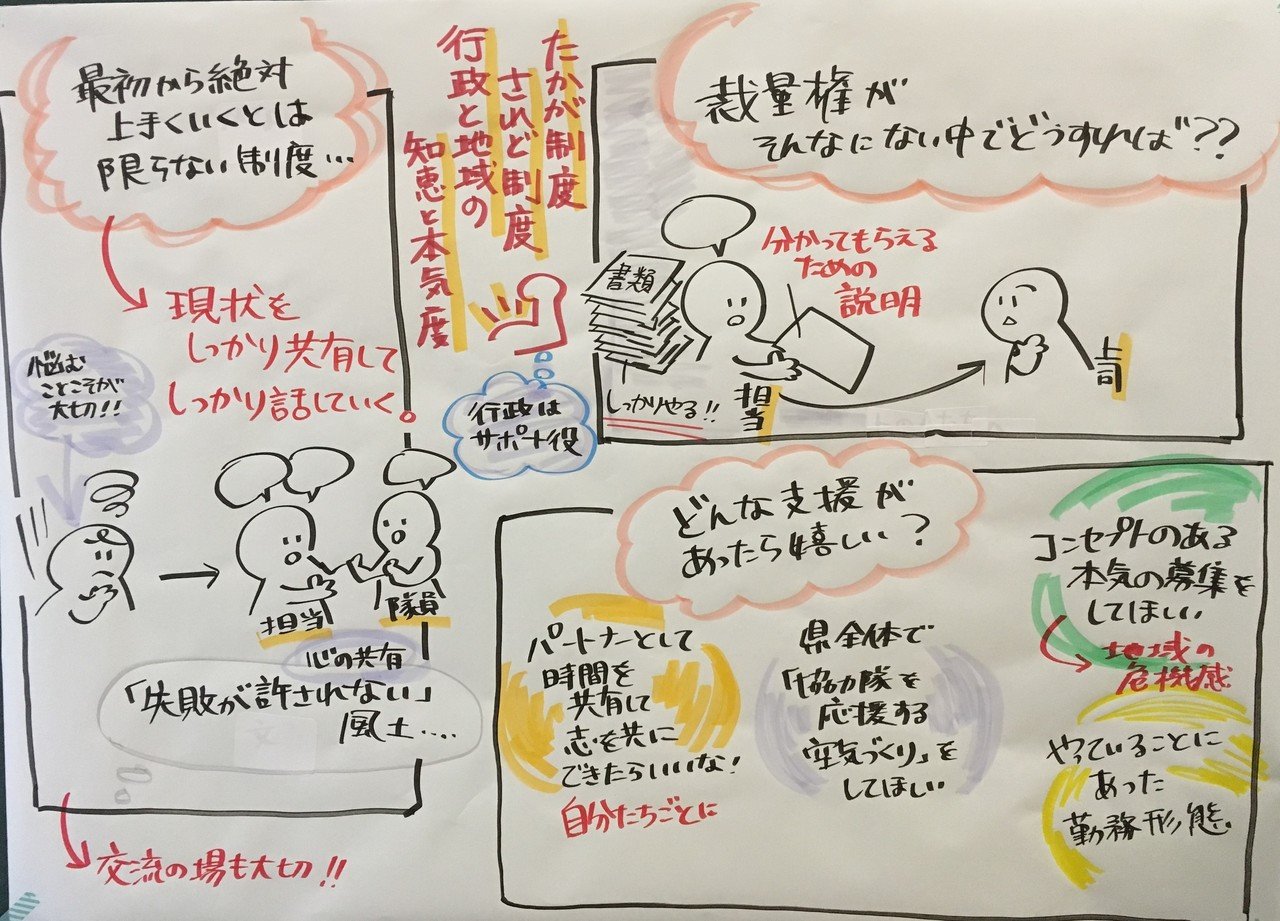 最初から絶対
上手くいくとは
限らない制度…
現状を
しっかり共有して
しっかり話していく。
悩む
ことこそが
大切!!
担当
隊員
心の共有
「失敗が許されない」
風土....
交流の場も大切!!
たかが制度
されど制度
行政と地域の
知恵と本気度
行政は
サポート役
裁量権が
そんなにない中でどうすれば??
書類
しっかりやる!!
分かってもらえる
ための
説明
担当
上司
どんな支援が
あったら嬉しい?
パートナーとして
時間を
共有して
志を共に
できたらいいな!
自分たちごとに
県全体で
「協力隊を
応援する
空気づくり」を
してほしい
コンセプトのある
本気の募集を
してほしい
地域の
危機感
やっていることに
あった
勤務形態